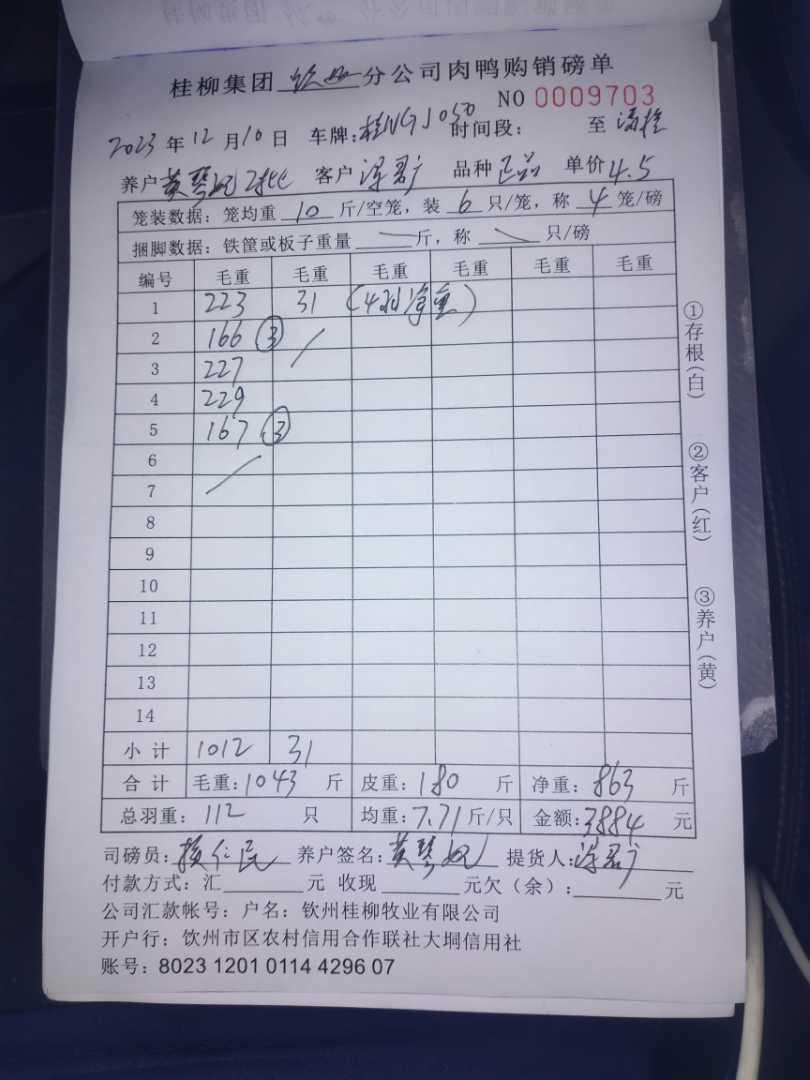 桂柳集团 钦州 分公司肉鸭购销磅单
NO 0009703
2023 年 12 月 10 日 车牌: 桂NGJ050 时间段: 至
养户 黄琴 客户 品种 正品 单价 4.5
笼装数据: 笼均重 10 斤/空笼, 装 6 只/笼, 称 4 笼/磅
捆脚数据: 铁筐或板子重量 斤, 称 只/磅
编号 毛重 毛重 毛重 毛重 毛重 毛重
1 223 31 (4羽净重)
2 166 ③
3 227
4 229
5 167 ③
6
7
8
9
10
11
12
13
14
小计 1012 31
合计 毛重: 1043 斤 皮重: 180 斤 净重: 863 斤
总羽重: 112 只 均重: 7.71 斤/只 金额: 3884 元
司磅员: 养户签名: 黄琴 提货人:
付款方式: 汇 元 收现 元欠(余): 元
公司汇款帐号: 户名: 钦州桂柳牧业有限公司
开户行: 钦州市区农村信用合作联社大垌信用社
账号: 8023 1201 0114 4296 07
①存根(白)
②客户(红)
③养户(黄)